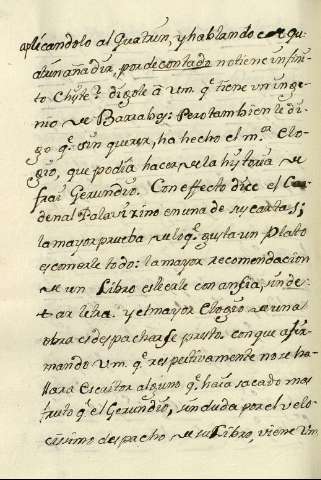 aplicandolo al Guatrin, y hablando con gu
atun añadir, por de contado no tiene infini
to Chiste? digole à Vm. qe. tiene un inge
nio de Barrabas: Pero tambien le di
go qe. sin querer, ha hecho el mor. Elo
gio, que podia hacer de la historia de
frai Gerundio. Con effecto dice el Car
denal Palavizino en una de sus cartas;
la mayor prueba de lo qe. gusta un Plato
es comerle todo: la mayor recomendacion
de un Libro es leerle con ansia, sin de
xar letra. y el mayor Elogio de una
obra es despacharse presto. con que afir
mando Vm. qe. respectivamente no se ha
llará Escritor alguno qe. haia sacado mas
fruto qe. el Gerundio, sin duda por el velo
cissimo despacho de su Libro, viene Vm.